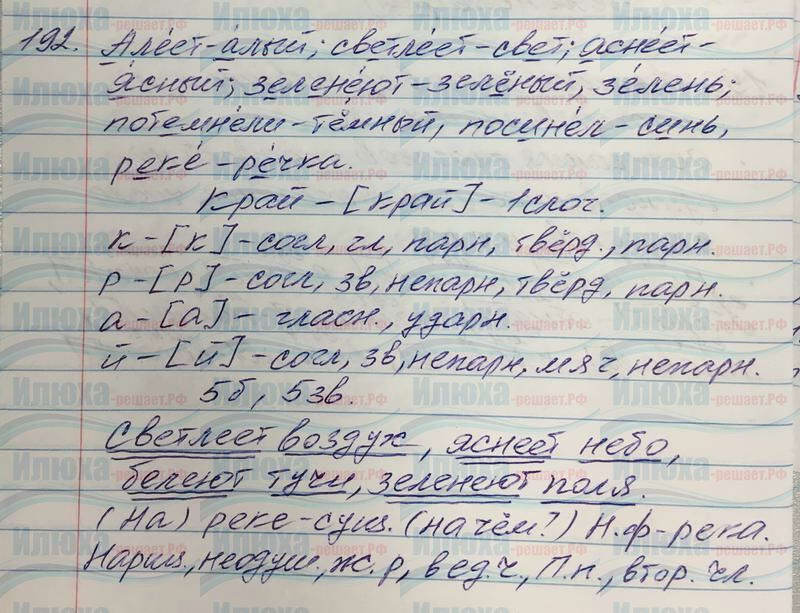 192. Але́ет-а́лый; светле́ет-свет; ясне́ет-
я́сный; зелене́ют-зелёный, зе́лень;
потемне́ли-тёмный, посине́л-синь,
реке́-ре́чка.
Край-[край]-1слог.
к-[к]-согл, гл, парн, твёрд., парн.
р-[р]-согл, зв, непарн, твёрд, парн.
а-[а]-гласн., ударн.
й-[й]-согл, зв, непарн, мяч, непарн.
5б, 5зв.
Светлеет воздух, яснеет небо,
белеют тучи, зеленеют поля.
(На) реке-сущ. (на чём?) Н.ф-река.
Нариц., неодуш., ж.р, в ед.ч, П.п., втор. чл.
Илюха-решает.РФ